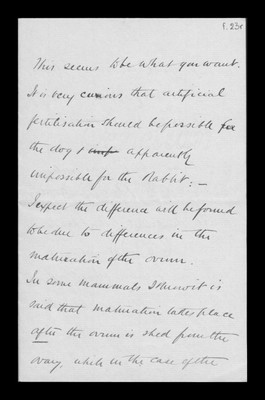 f. 23r
This seems to be what you want.
It is very curious that artificial
fertilisation should be possible for
the dog & imp apparently
impossible for the Rabbit: —
I expect the difference will be found
to be due to differences in the
maturation of the ovum.
In some mammals I know it is
said that maturation takes place
after the ovum is shed from the
ovary, while in the case of the